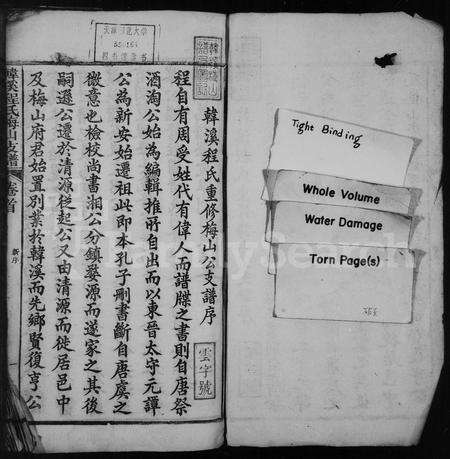 韓溪程氏重修梅山公支譜序
程自有周受姓代有偉人而譜牒之書則自唐祭
酒淘公始為編輯推所自出而以東晉太守元譚
公為新安始遷祖此即本孔子刪書斷自唐虞之
微意也檢校尚書湘公分鎮婺源而遂家之其後
嗣遜公遷於清源從起公又由清源而徙居邑中
及梅山府君始置別業於韓溪而先鄉賢復亨公
韓溪程氏梅山支譜
卷首
新序
一
雲字號
Tight Binding
Whole Volume
Water Damage
Torn Page(s)
FamilySearch